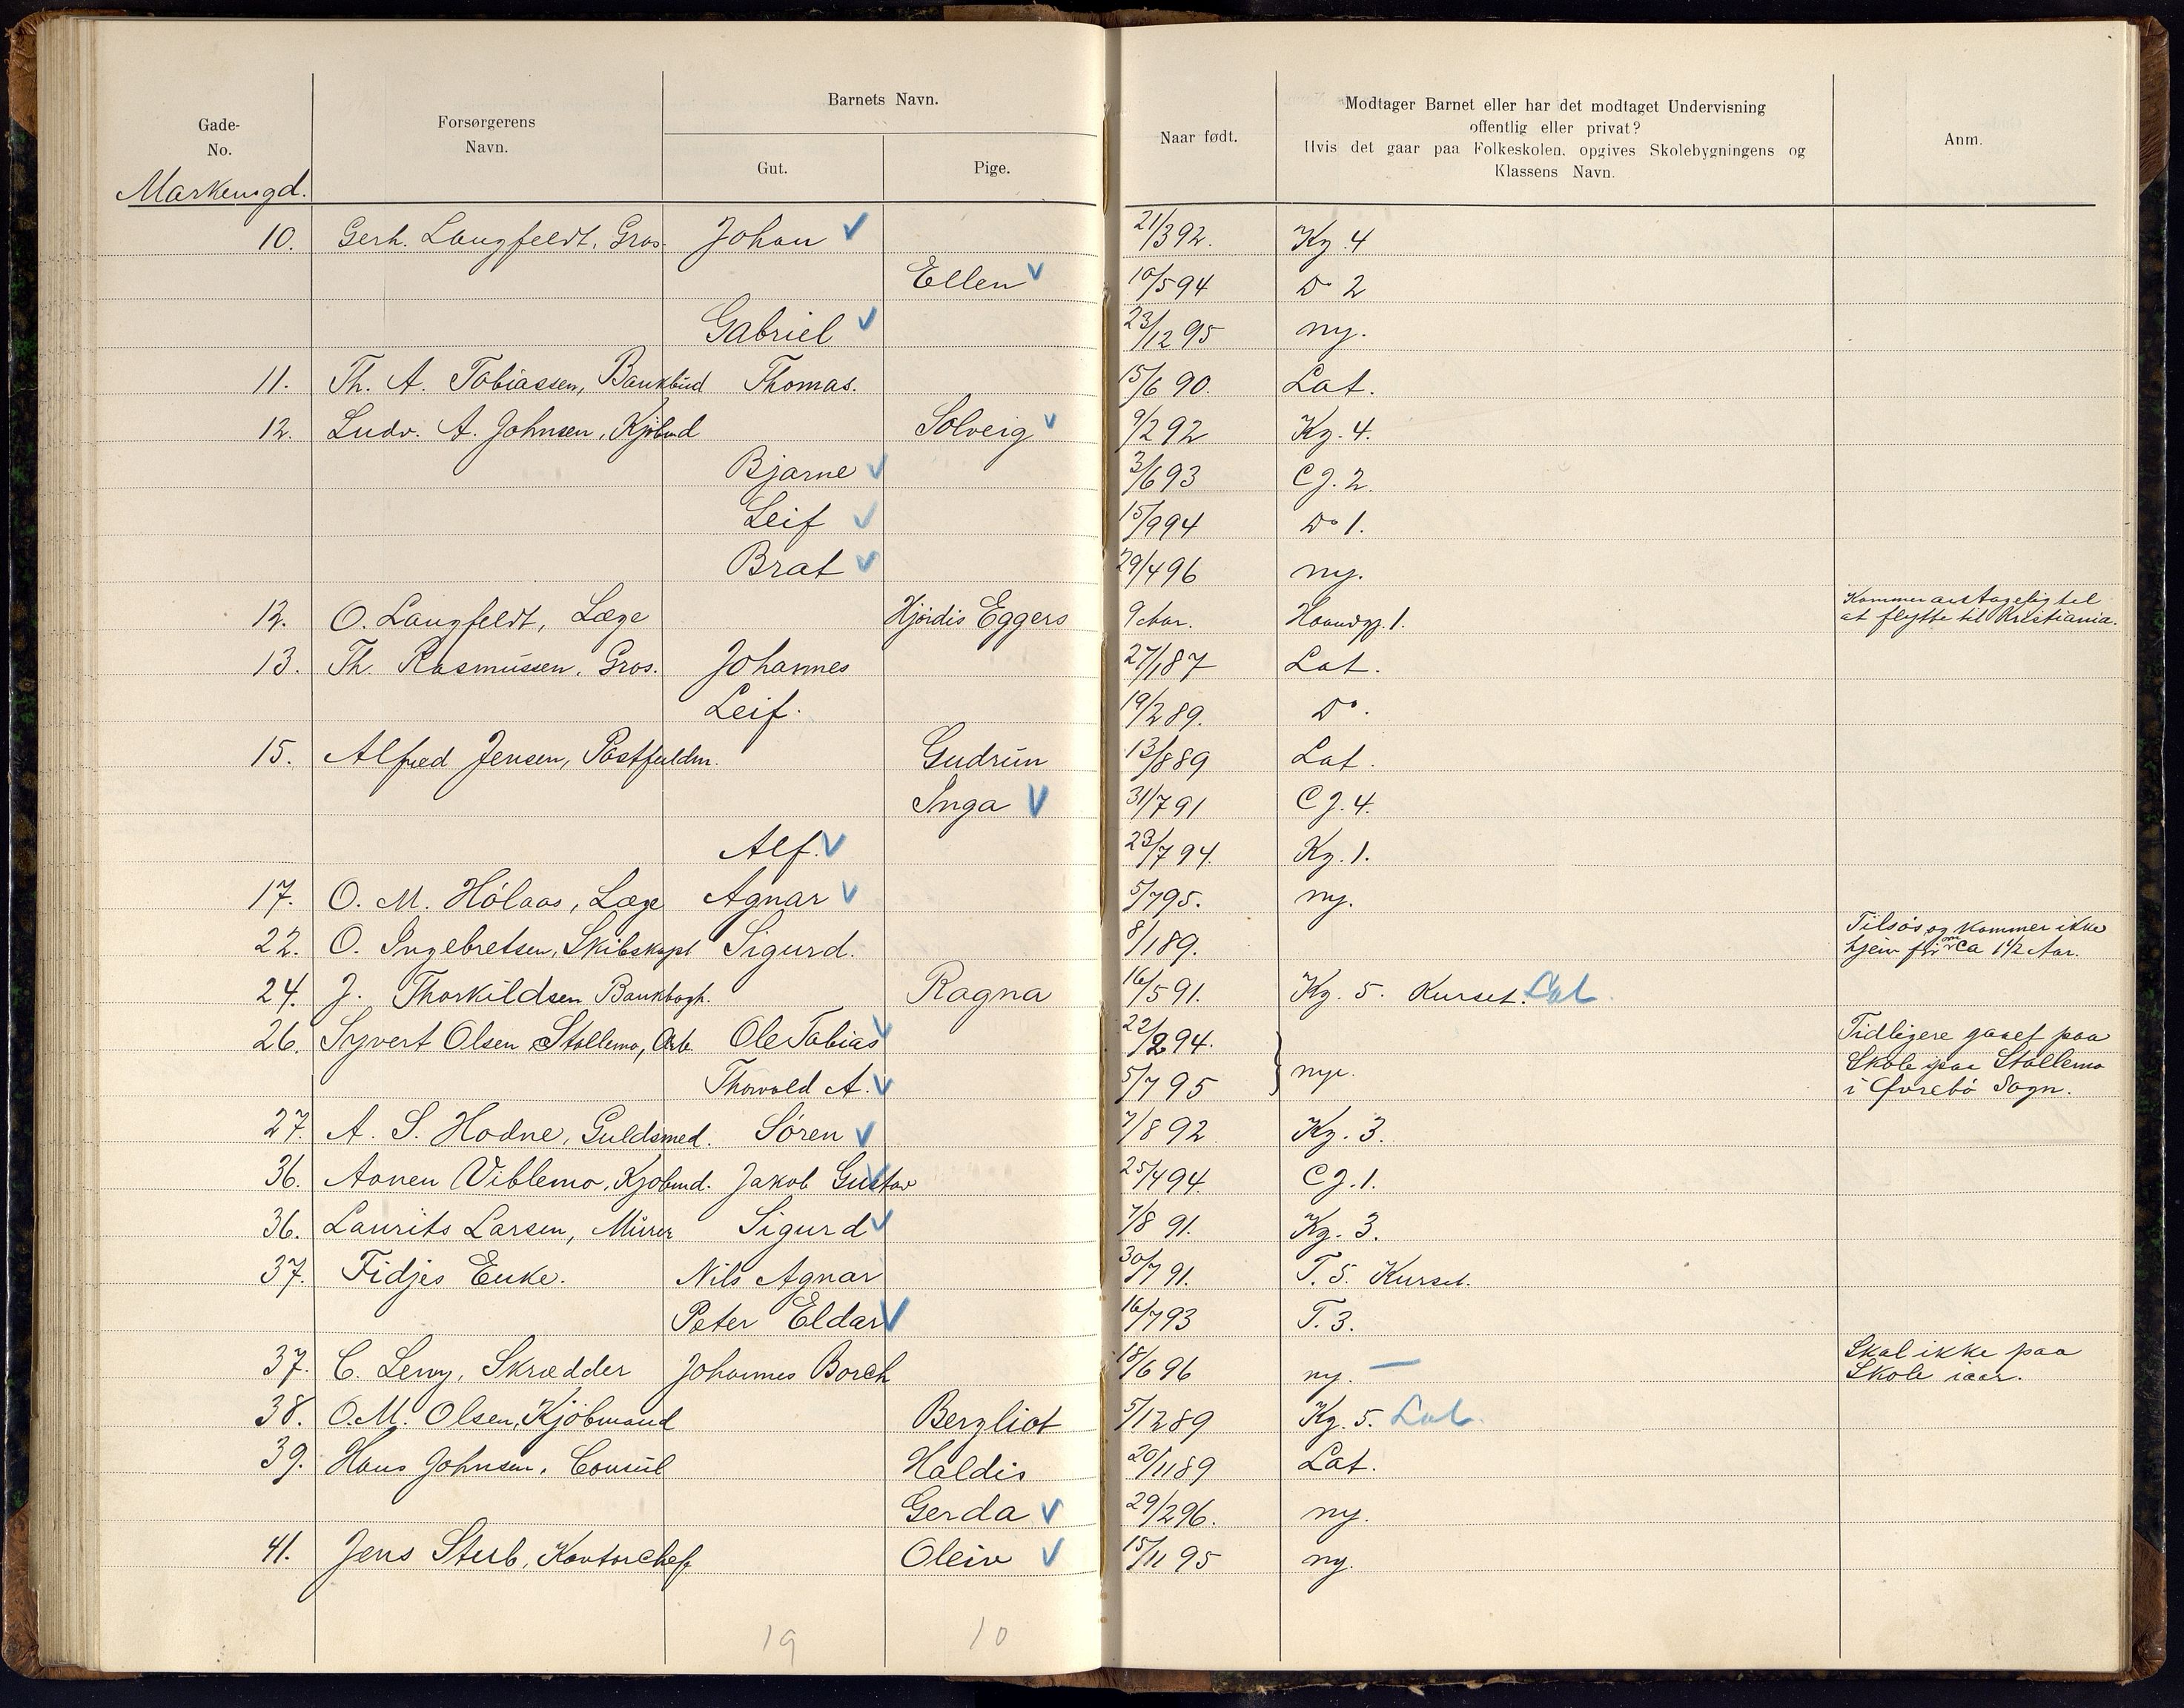 Gade-
No.
Forsørgerens
Navn.
Barnets Navn.
Gut.
Pige.
Naar født.
Modtager Barnet eller har det modtaget Undervisning
offentlig eller privat?
Hvis det gaar paa Folkeskolen, opgives Skolebygningens og
Klassens Navn.
Anm.
Markensgd.
10. Gerh. Langfeldt, Gros. Johan 21/3 92. Kg. 4
Ellen 10/5 94 Do 2
Gabriel 23/12 95 ny.
11. Th. A. Tobiassen, Bankbud Thomas. 15/6 90. Lat.
12. Ludv. A. Johnsen, Kjöbmd Solveig 9/2 92 Kg. 4.
Bjarne 3/6 93 CJ. 2.
Leif 15/9 94 Do 1.
Brat 29/4 96 ny.
12. O. Langfeldt, Læge Hjördis Eggers 9 Aar. 1. Kommer antagelig til
at flytte til Kristiania.
13. Th. Rasmussen, Gros. Johannes 27/1 87 Lat.
Leif. 19/2 89. Do.
15. Alfred Jensen, Postfuldm. Gudrun 13/8 89 Lat.
Inga 31/7 91 CJ. 4.
Alf. 23/7 94. Kg. 1.
17. O. M. Hölaas, Læge Agnar 5/7 95. ny.
22. O. Ingebretsen, Skibskapt Sigurd. 8/1 89. Tilsös og kommer ikke
hjem før om ca 1 1/2 Aar.
24. J. Thorkildsen Bankbogh. Ragna 16/5 91. Kg. 5. Kurset. Lat
26. Syvert Olsen Stallemo, Arb. Ole Tobias 22/2 94. Tidligere gaaet paa
Thorvald A. 5/7 95 nye. Skole paa Stallemo
i Øvrebö Sogn.
27. A. S. Hodne, Guldsmed. Sören 7/8 92 Kg. 3.
36. Aanen Viblemo, Kjøbmd. Jakob Gustav 25/4 94. CJ. 1.
36. Laurits Larsen, Murer Sigurd 7/8 91. Kg. 3.
37. Fidjes Enke. Nils Agnar 30/7 91. T. 5. Kurset.
Peter Eldar 16/7 93 T. 3.
37. C. Levy, Skrædder Johannes Borch 18/6 96 ny. — Skal ikke paa
Skole iaar.
38. O. M. Olsen, Kjöbmand Bergliot 5/12 89 Kg. 5. Lat.
39. Hans Johnsen, Consul Haldis 20/11 89 Lat.
Gerda 29/2 96. ny.
41. Jens Stub, Kontorchef Oleiv 15/11 95 ny.
19 10